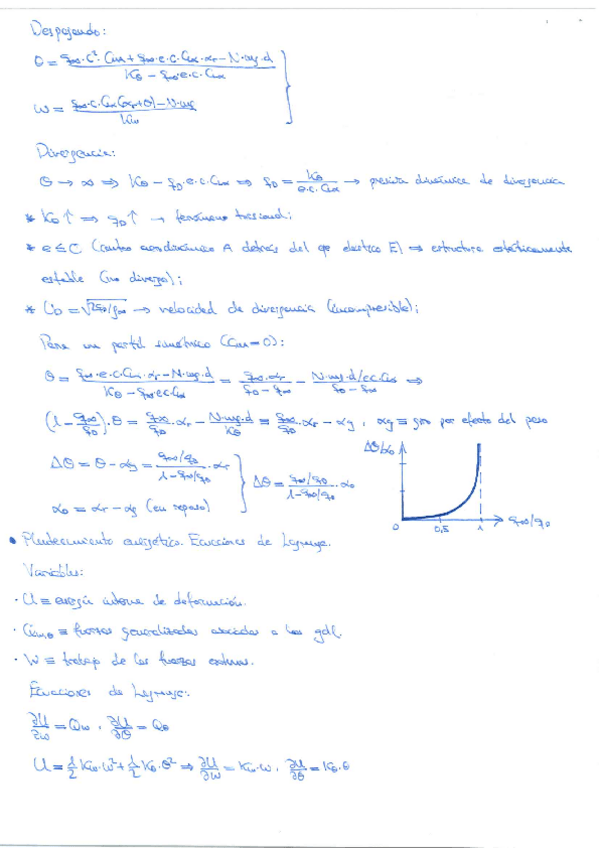 Despejando:
θ = (q∞·c²·Cm + q∞·e·c·Clα·αr − N·mg·d) / (Kθ − q∞·e·c·Clα)
w = (q∞·c·Clα(αr+θ) − N·mg) / Kw
Divergencia:
θ → ∞ ⇒ Kθ − qD·e·c·Clα ⇒ qD = Kθ / (e·c·Clα) → presión dinámica de divergencia
* Kθ↑ ⇒ qD↑ → fenómeno torsional;
* e ≤ C (centro aerodinámico A detrás del eje elástico E) ⇒ estructura estáticamente
estable (no diverge);
* UD = √(2qD/ρ∞) → velocidad de divergencia (incompresible);
Para un perfil simétrico (Cm=0):
θ = (q∞·e·c·Clα·αr − N·mg·d) / (Kθ − q∞·e·c·Clα) = (q∞·αr) / (qD − q∞) − (N·mg·d/ecClα) / (qD − q∞) ⇒
(1 − q∞/qD)·θ = q∞/qD·αr − N·mg·d/Kθ = q∞/qD·αr − αg, αg ≡ giro por efecto del peso
Δθ = θ − αg = (q∞/qD) / (1 − q∞/qD)·αr
α0 = αr − αg (en reposo)
Δθ = (q∞/qD) / (1 − q∞/qD)·α0
Δθ/α0
0 0,5 1 q∞/qD
• Planteamiento energético. Ecuaciones de Lagrange.
Variables:
· U ≡ energía interna de deformación.
· Qw,θ ≡ fuerzas generalizadas asociadas a los gdl.
· W ≡ trabajo de las fuerzas externas.
Ecuaciones de Lagrange:
∂U/∂w = Qw, ∂U/∂θ = Qθ
U = 1/2 Kw·w² + 1/2 Kθ·θ² ⇒ ∂U/∂w = Kw·w, ∂U/∂θ = Kθ·θ